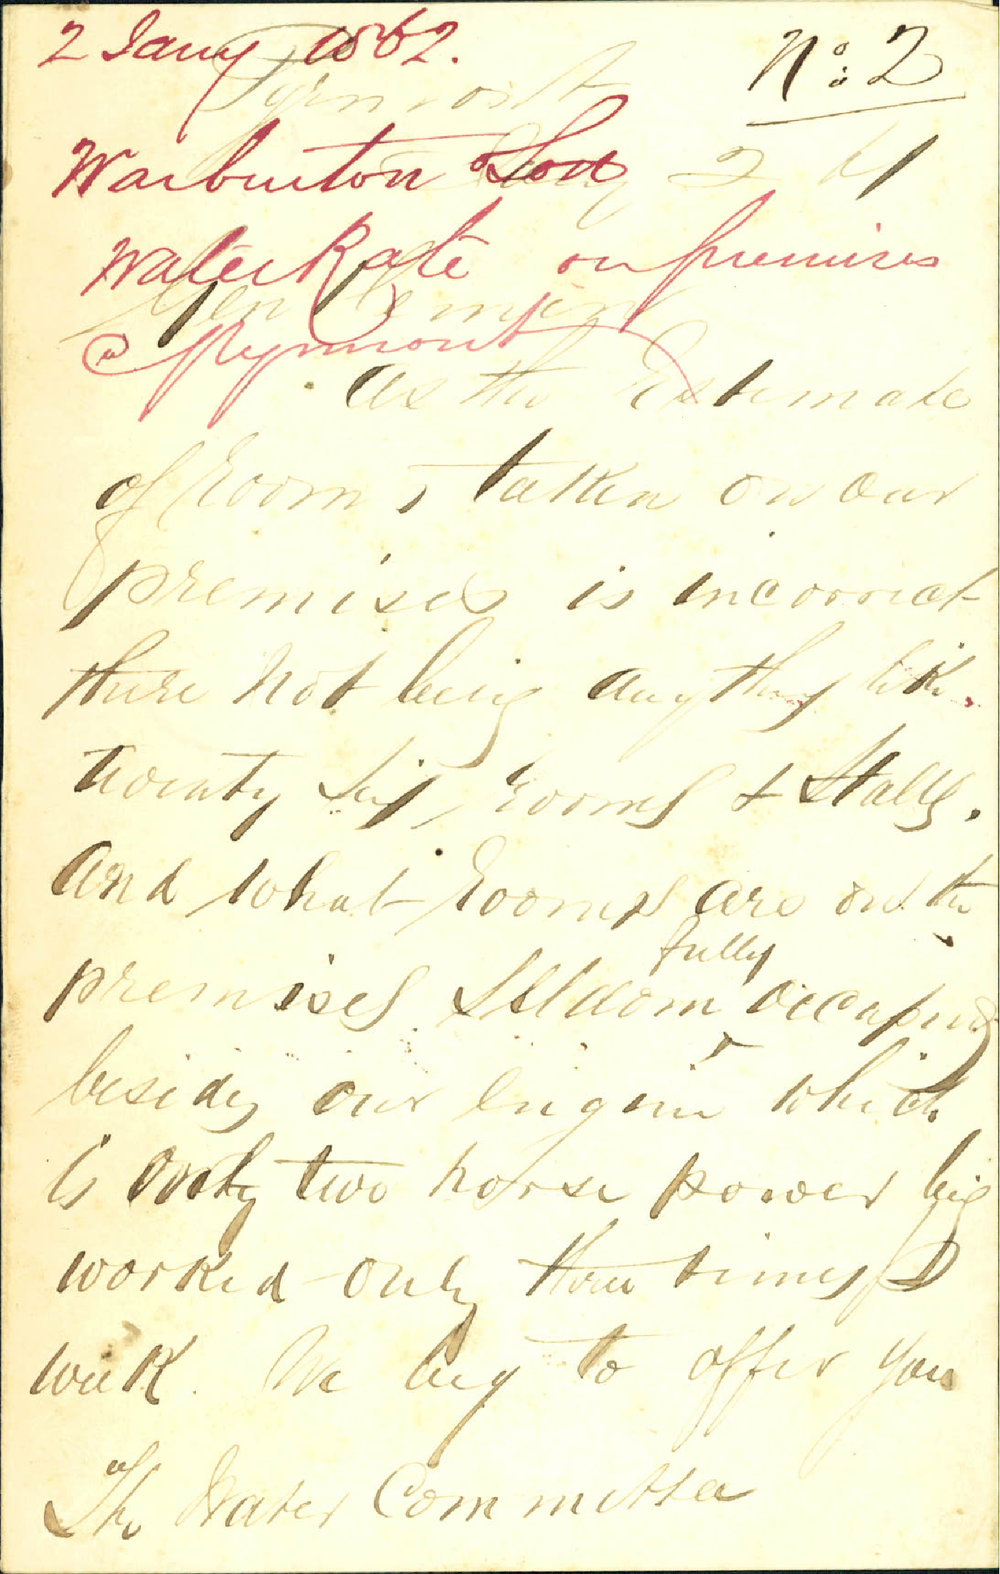 2 Jany 1862.
No: 2
Pyrmont
Warburton & Son
Jany 2 61
Water Rate on premises
Gentlemen
@ Pyrmont
As the Estimate
of Rooms taken on our
premises is incorrect
there not being anything like
twenty Six, rooms & Stalls.
And what Rooms are on the
fully
premises Seldom occupied
besides our Engine which
is only two horse power being
worked only three times P
week. We beg to offer you
The Water Committee